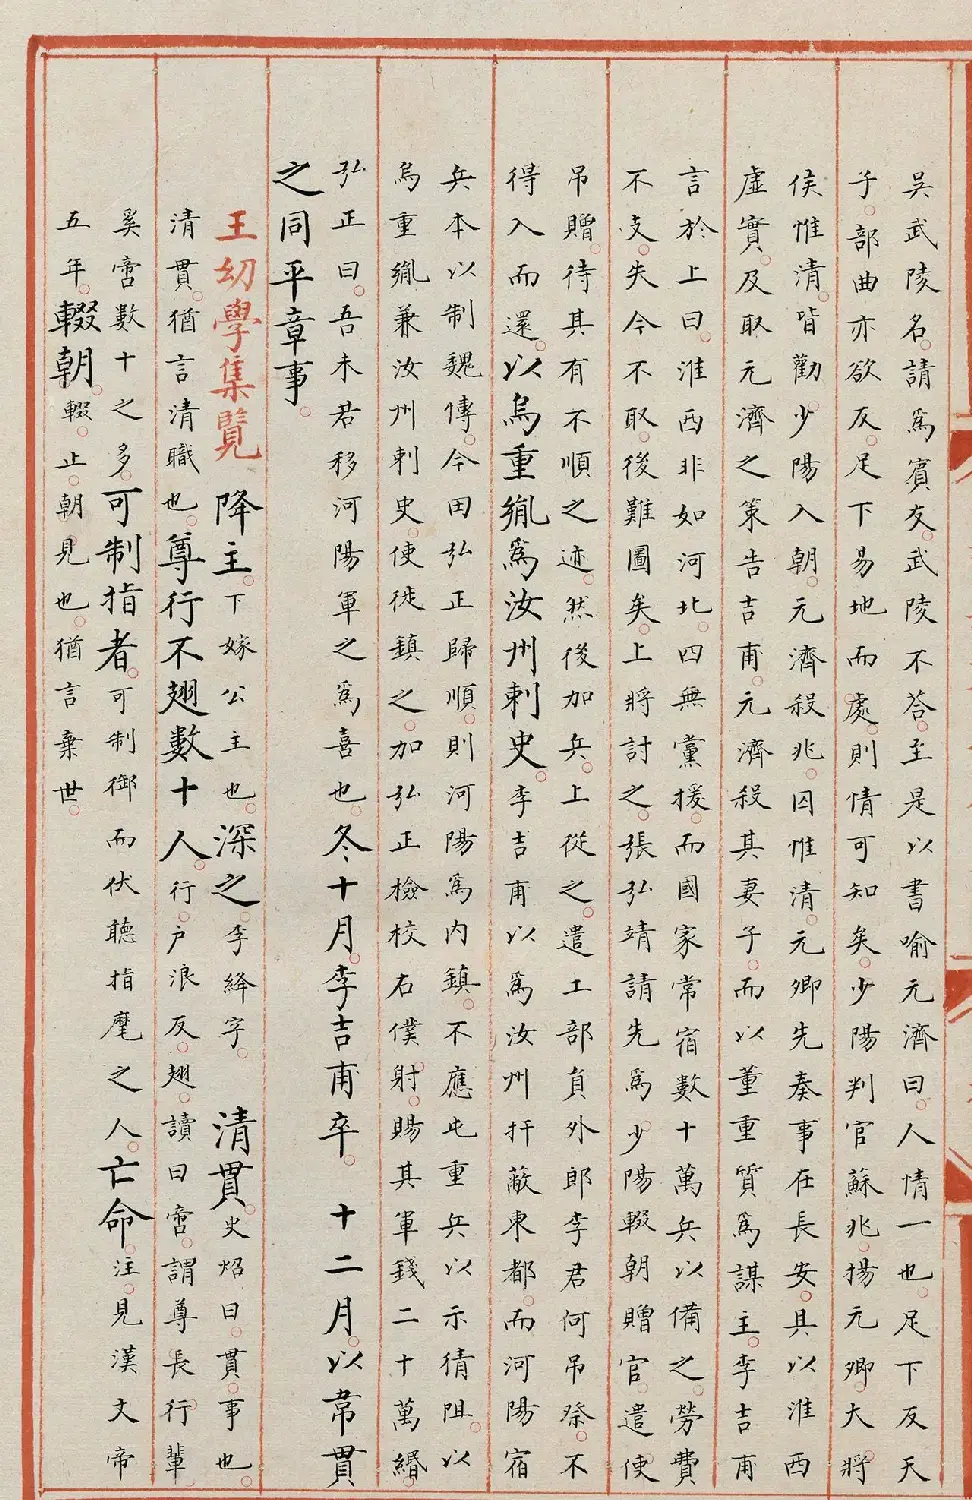 吳武陵名。請爲賓友。武陵不荅。至是以書喻元濟曰。人情一也。足下反天
子。部曲亦欲反。足下易地而處。則情可知矣。少陽判官蘇兆。揚元卿。大將
侯惟清。皆勸少陽入朝。元濟殺兆。囚惟清。元卿先奏事在長安。具以淮西
虛實。及取元濟之策告吉甫。元濟殺其妻子。而以董重質爲謀主。李吉甫
言於上曰。淮西非如河北。四無黨援。而國家常宿數十萬兵以備之。勞費
不支。失今不取。後難圖矣。上將討之。張弘靖請先爲少陽輟朝贈官。遣使
吊贈。待其有不順之迹。然後加兵。上從之。遣工部員外郎李君何吊祭。不
得入而還。以烏重胤爲汝州刺史。李吉甫以爲汝州扞蔽東都。而河陽宿
兵。本以制魏傳。今田弘正歸順。則河陽爲内鎮。不應屯重兵以示猜阻。以
烏重胤兼汝州刺史。使徙鎮之。加弘正檢校右僕射。賜其軍錢二十萬緡。
弘正曰。吾未若移河陽軍之爲喜也。冬十月。李吉甫卒。 十二月。以韋貫
之同平章事。
王幼學集覽 降主。下嫁公主也。深之。李絳字。 清貫。史炤曰。貫。事也。
清貫。猶言清職也。尊行不翅數十人。行。戶浪反。翅。讀曰啻。謂尊長行輩
奚啻數十之多。可制指者。可制御而伏聽指麾之人。亡命。注見漢文帝
五年。輟朝。輟。止。朝見也。猶言棄世。